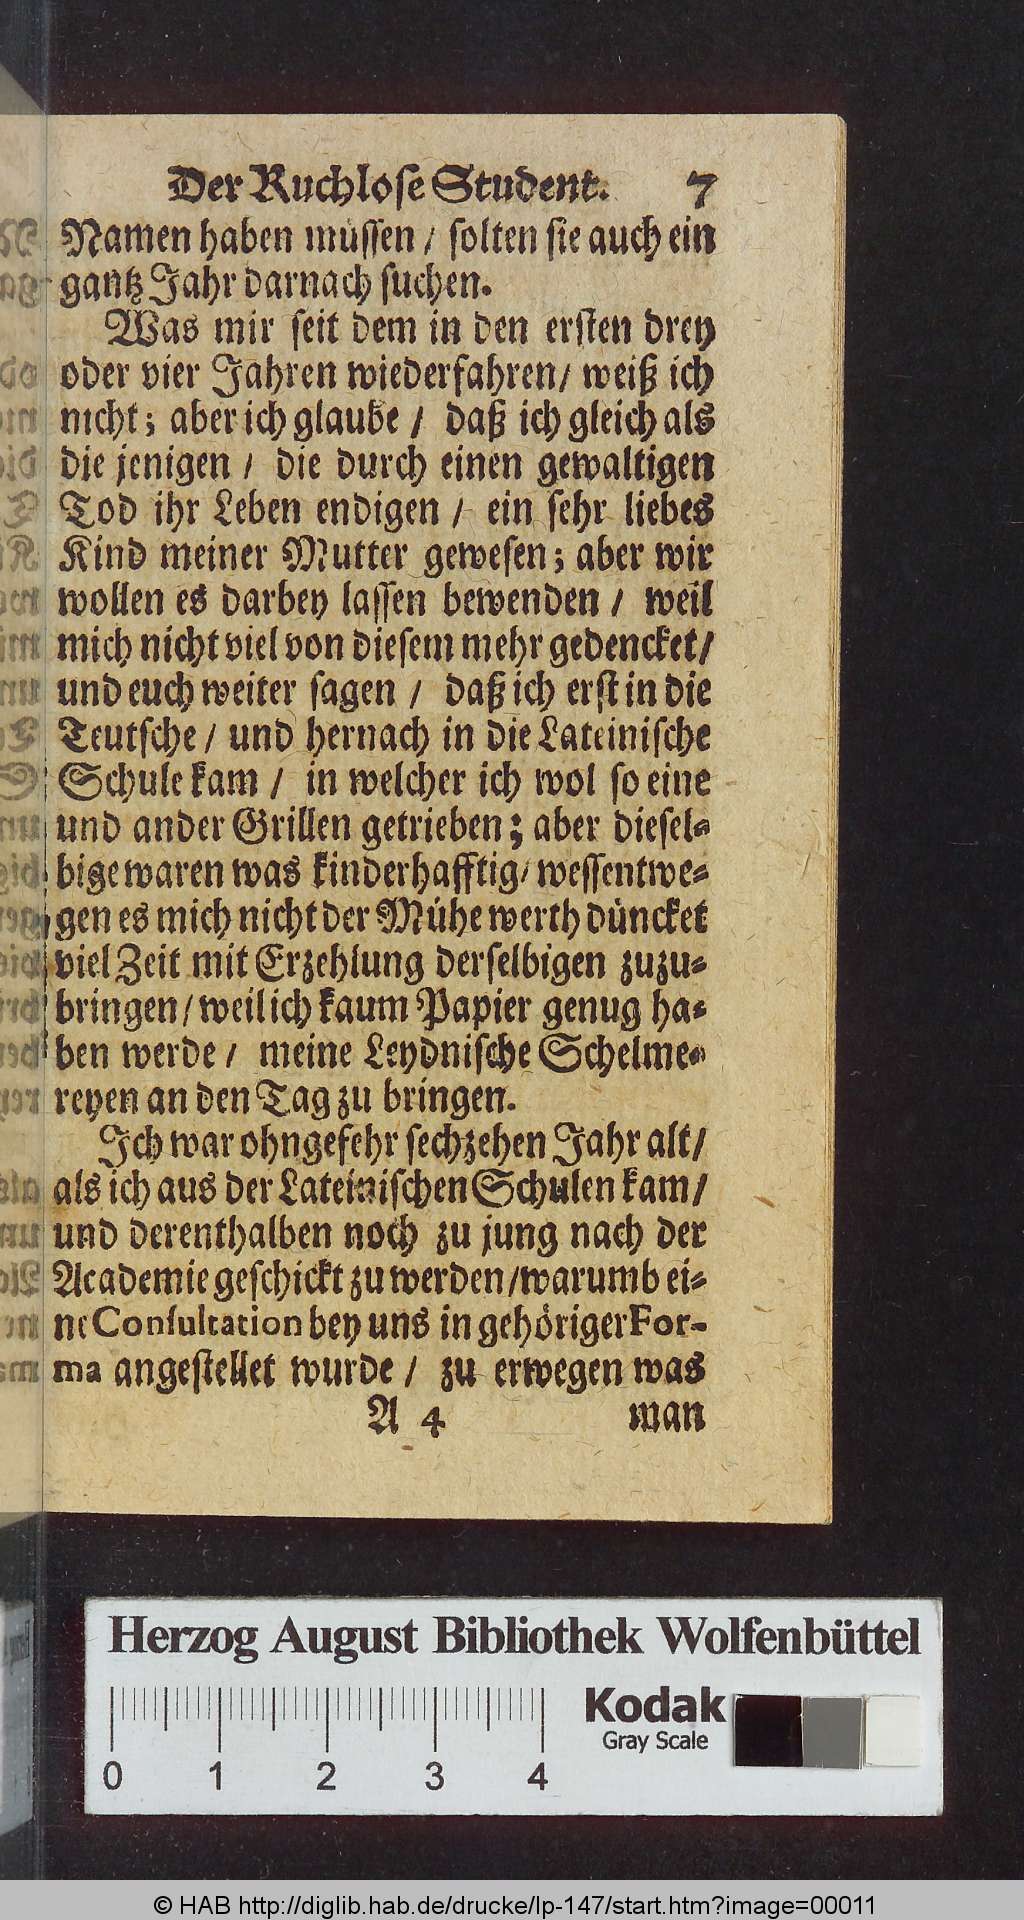 Der Ruchlose Student. 7
Namen haben müssen / solten sie auch ein
gantz Jahr darnach suchen.
Was mir seit dem in den ersten drey
oder vier Jahren wiederfahren / weiß ich
nicht; aber ich glaube / daß ich gleich als
die jenigen / die durch einen gewaltigen
Tod ihr Leben endigen / ein sehr liebes
Kind meiner Mutter gewesen; aber wir
wollen es darbey lassen bewenden / weil
mich nicht viel von diesem mehr gedencket /
und euch weiter sagen / daß ich erst in die
Teutsche / und hernach in die Lateinische
Schule kam / in welcher ich wol so eine
und ander Grillen getrieben; aber diesel-
bige waren was kinderhafftig / wessentwe-
gen es mich nicht der Mühe werth düncket
viel Zeit mit Erzehlung derselbigen zuzu-
bringen / weil ich kaum Papier genug ha-
ben werde / meine Leydnische Schelme-
reyen an den Tag zu bringen.
Ich war ohngefehr sechzehen Jahr alt /
als ich aus der Lateinischen Schulen kam /
und derenthalben noch zu jung nach der
Academie geschickt zu werden / warumb ei-
ne Consultation bey uns in gehöriger For-
ma angestellet wurde / zu erwegen was
A 4 man
Herzog August Bibliothek Wolfenbüttel
Kodak
Gray Scale
0 1 2 3 4
© HAB http://diglib.hab.de/drucke/lp-147/start.htm?image=00011